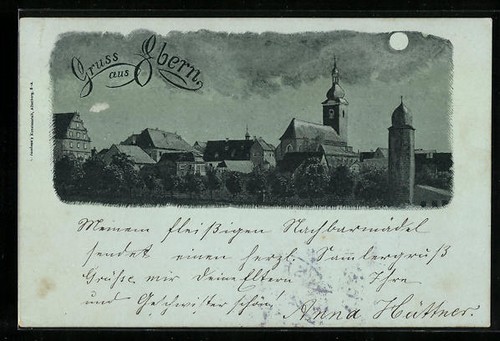 Gruss
aus Ebern.
Meinem fleißigen Nachbarmädel
sendet einen herzl. Samlergruß
Grüße mir Deine Eltern Ihre
und Geschwister schön Anna Hüttner.